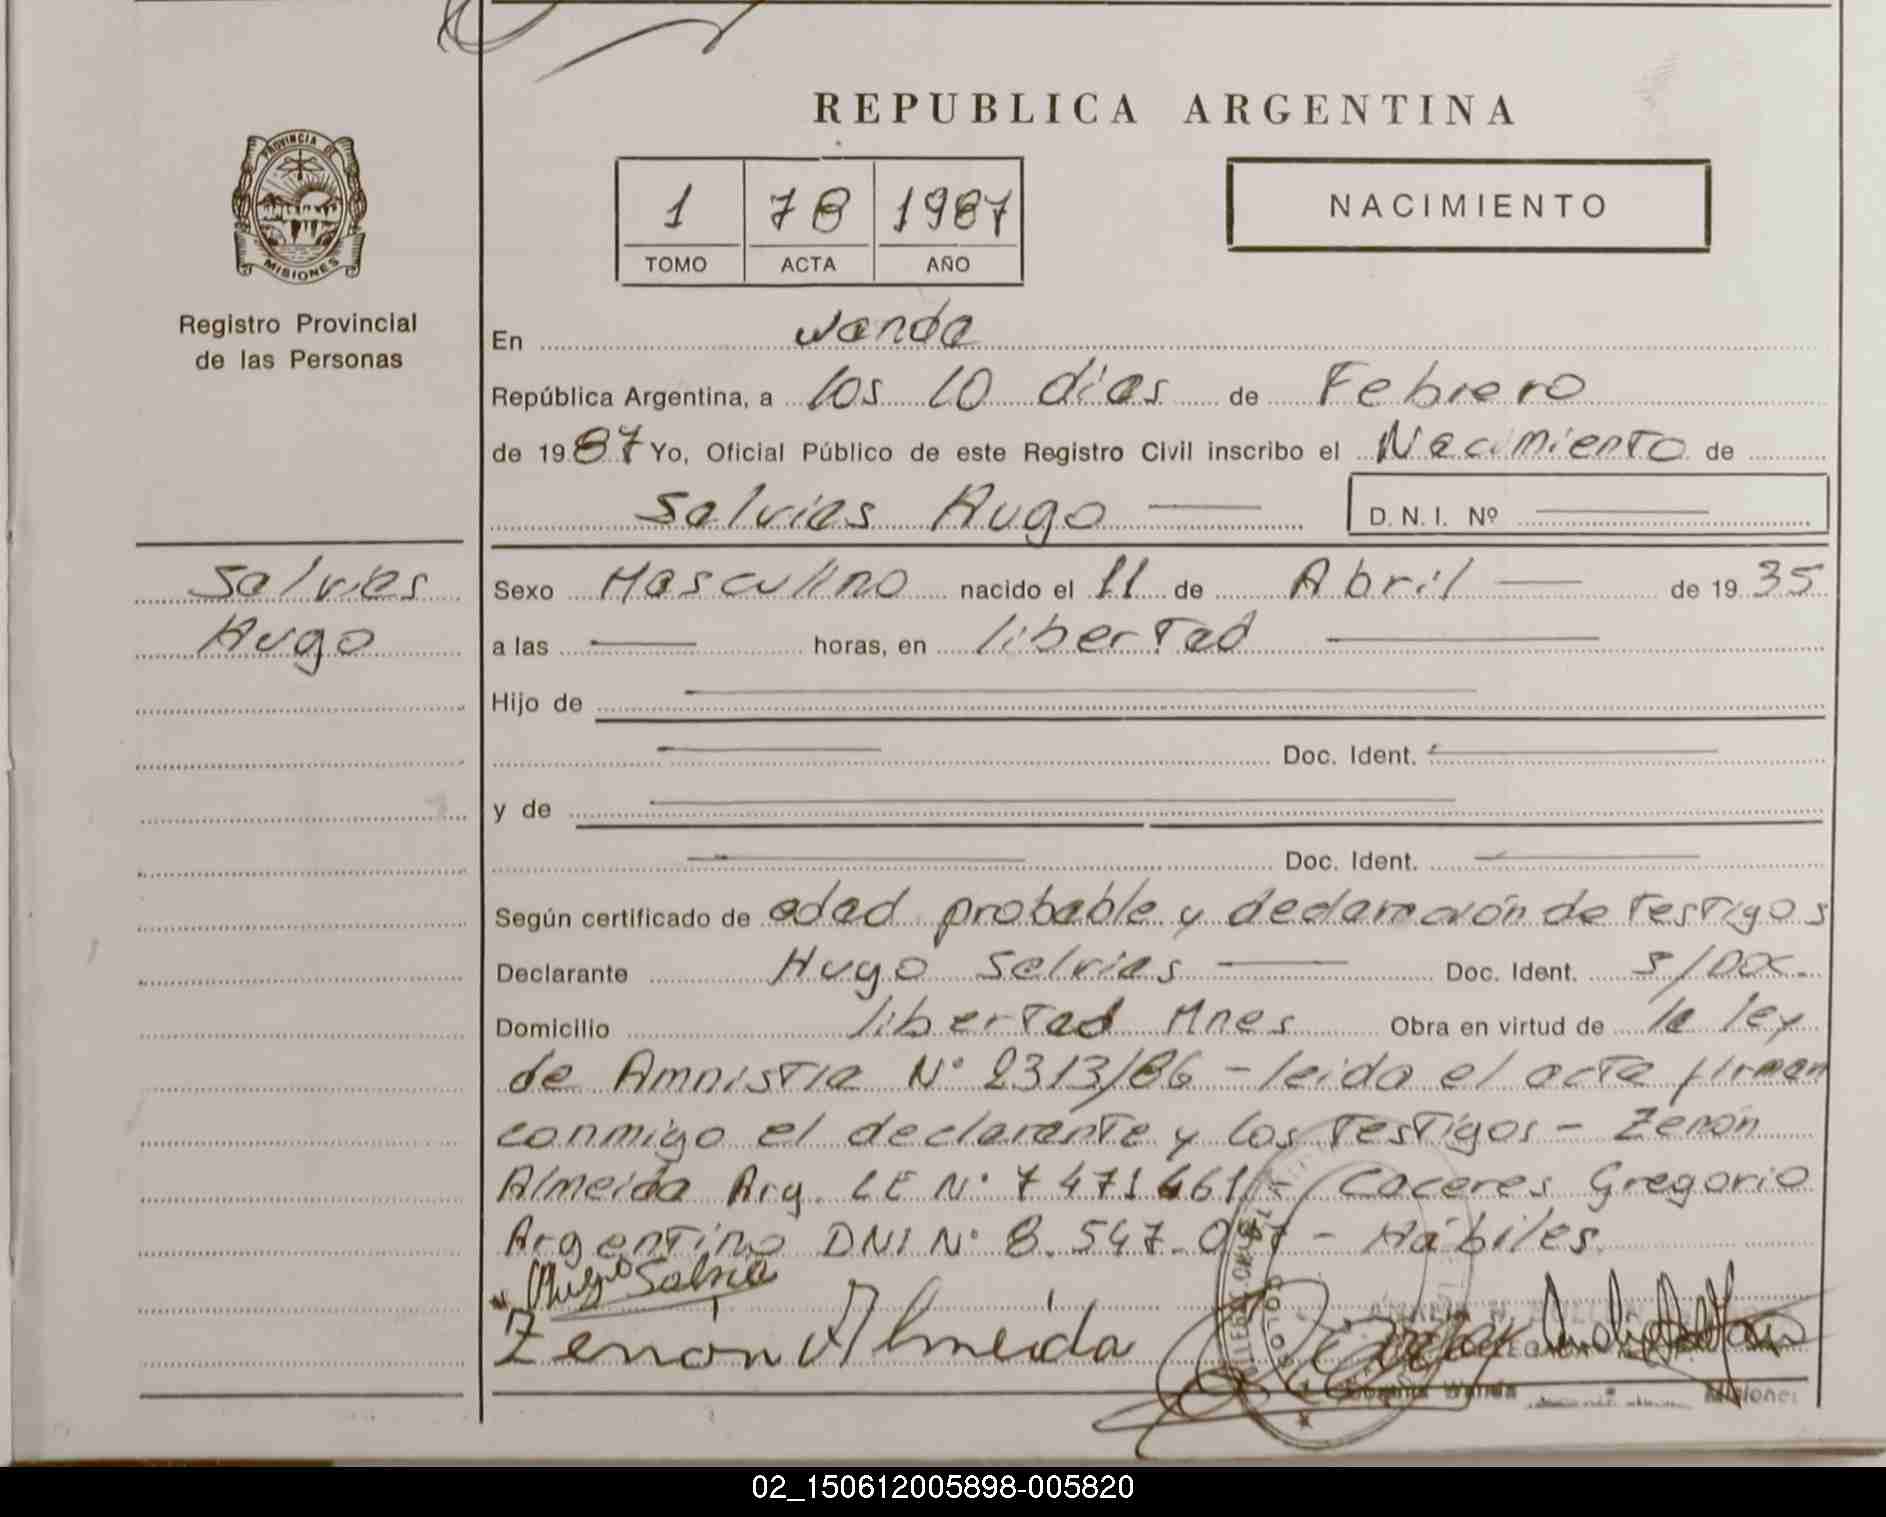 REPUBLICA ARGENTINA
PROVINCIA DE
MISIONES
Registro Provincial
de las Personas
1 78 1987
TOMO ACTA AÑO
NACIMIENTO
En wanda
República Argentina, a los 10 días de Febrero
de 1987 Yo, Oficial Público de este Registro Civil inscribo el Nacimiento de
Salvias Hugo
D.N.I. Nº
Salvias
Hugo
Sexo Masculino nacido el 11 de Abril de 1935
a las horas, en libertad
Hijo de
Doc. Ident.
y de
Doc. Ident.
Según certificado de edad probable y declaración de Testigos
Declarante Hugo Salvias Doc. Ident. S/Doc.
Domicilio libertad Mnes Obra en virtud de la ley
de Amnistia Nº 2313/86 - leida el acta firman
conmigo el declarante y los Testigos - Zenón
Almeida Arg. LE Nº 7471461 - Caceres Gregorio
Argentino DNI Nº 8.547. - Hábiles.
Hugo Salvia
Zenón Almeida
02_150612005898-005820